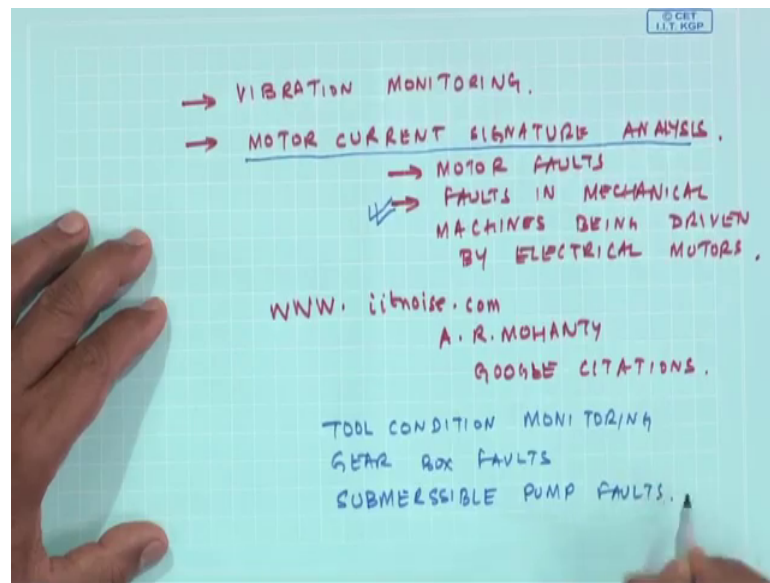 © CET
I.I.T. KGP
→ VIBRATION MONITORING.
→ MOTOR CURRENT SIGNATURE ANALYSIS.
→ MOTOR FAULTS
→ FAULTS IN MECHANICAL
MACHINES BEING DRIVEN
BY ELECTRICAL MOTORS.
WWW. iitnoise.com
A. R. MOHANTY
GOOGLE CITATIONS.
TOOL CONDITION MONITORING
GEAR BOX FAULTS
SUBMERSSIBLE PUMP FAULTS.